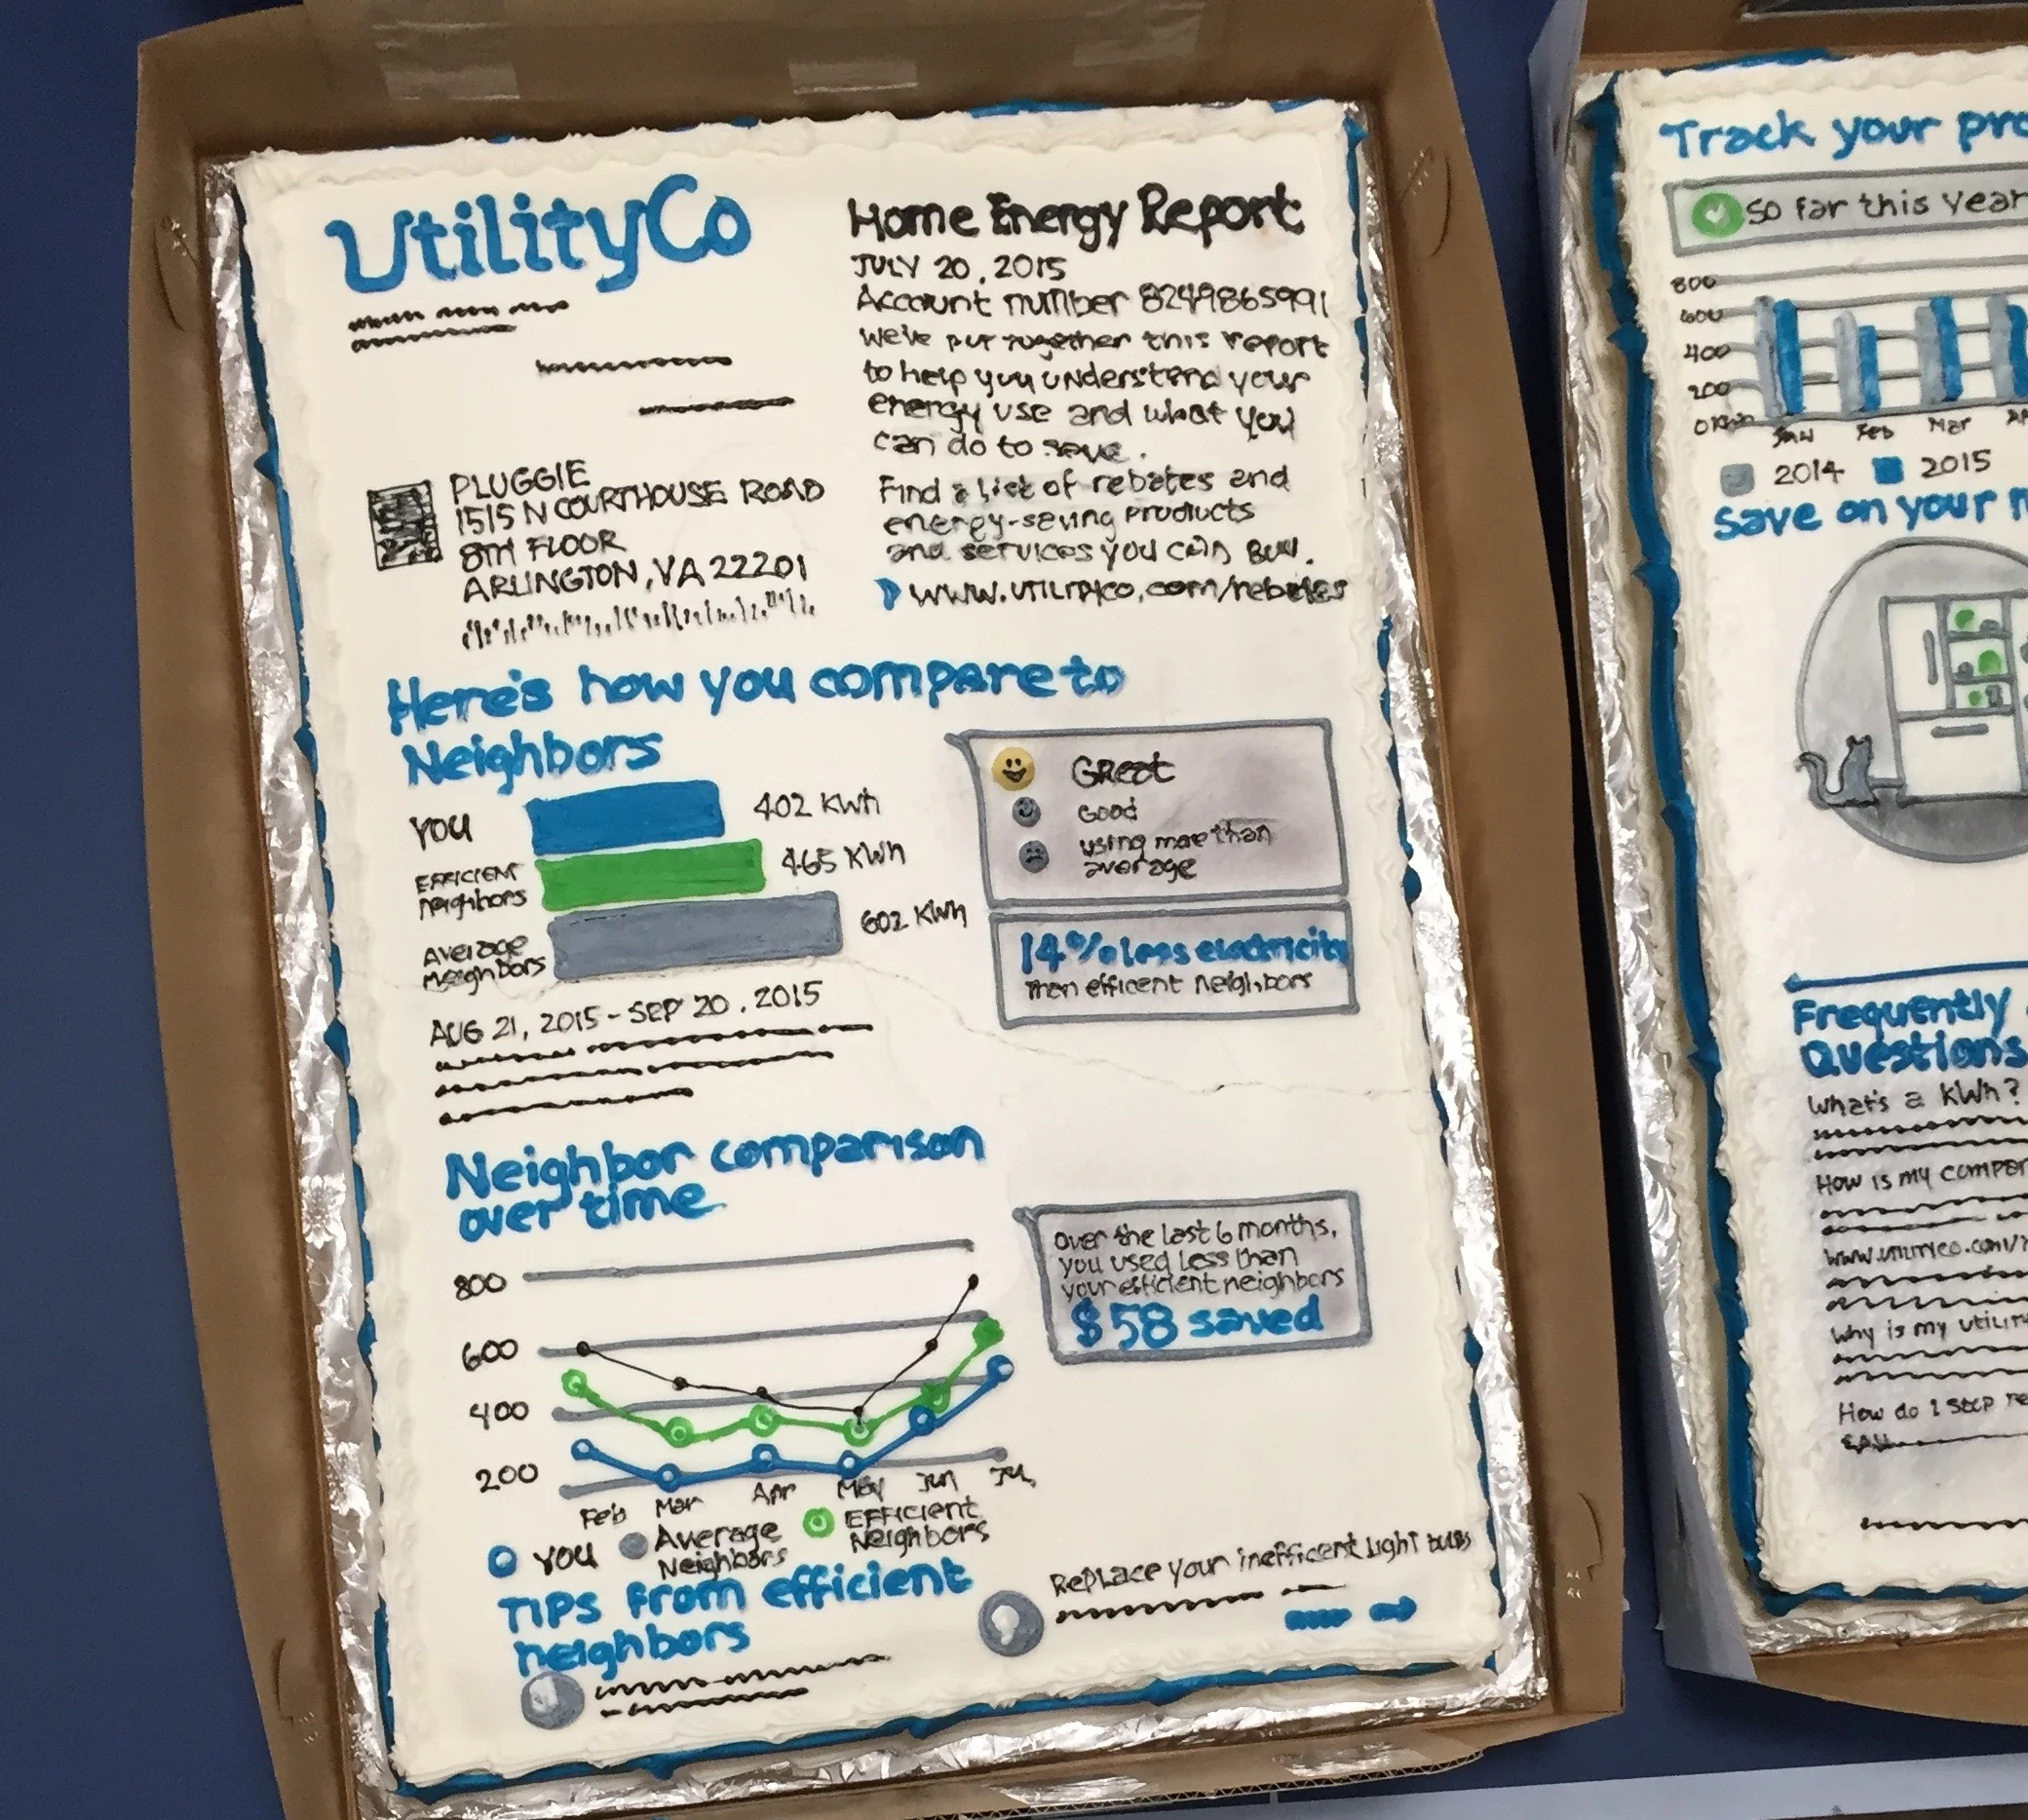 UtilityCo
Home Energy Report
JULY 20, 2015
Account number 8249865991
We've put together this report
to help you understand your
energy use and what you
can do to save.
Find a list of rebates and
energy-saving products
and services you can buy.
www.utilityco.com/rebates
PLUGGIE
1515 N COURTHOUSE ROAD
8TH FLOOR
ARLINGTON, VA 22201
Here's how you compare to
Neighbors
YOU
402 KWh
EFFICIENT
neighbors
465 KWh
Average
Neighbors
602 KWh
Great
Good
using more than
average
14% less electricity
Then efficent neighbors
AUG 21, 2015 - SEP 20, 2015
Neighbor comparison
over time
800
600
400
200
Feb Mar Apr May Jun JUL
YOU
Average
Neighbors
EFFICient
Neighbors
Over the last 6 months,
you used less than
your efficient neighbors
$58 saved
TIPS From efficient
neighbors
Replace your inefficent Light bulbs
Track your
So far this year
800
600
400
200
0
Jan Feb Mar
2014 2015
Save on your
Frequently
Questions
What's a KWh?
How is my
Why is my
How do I stop